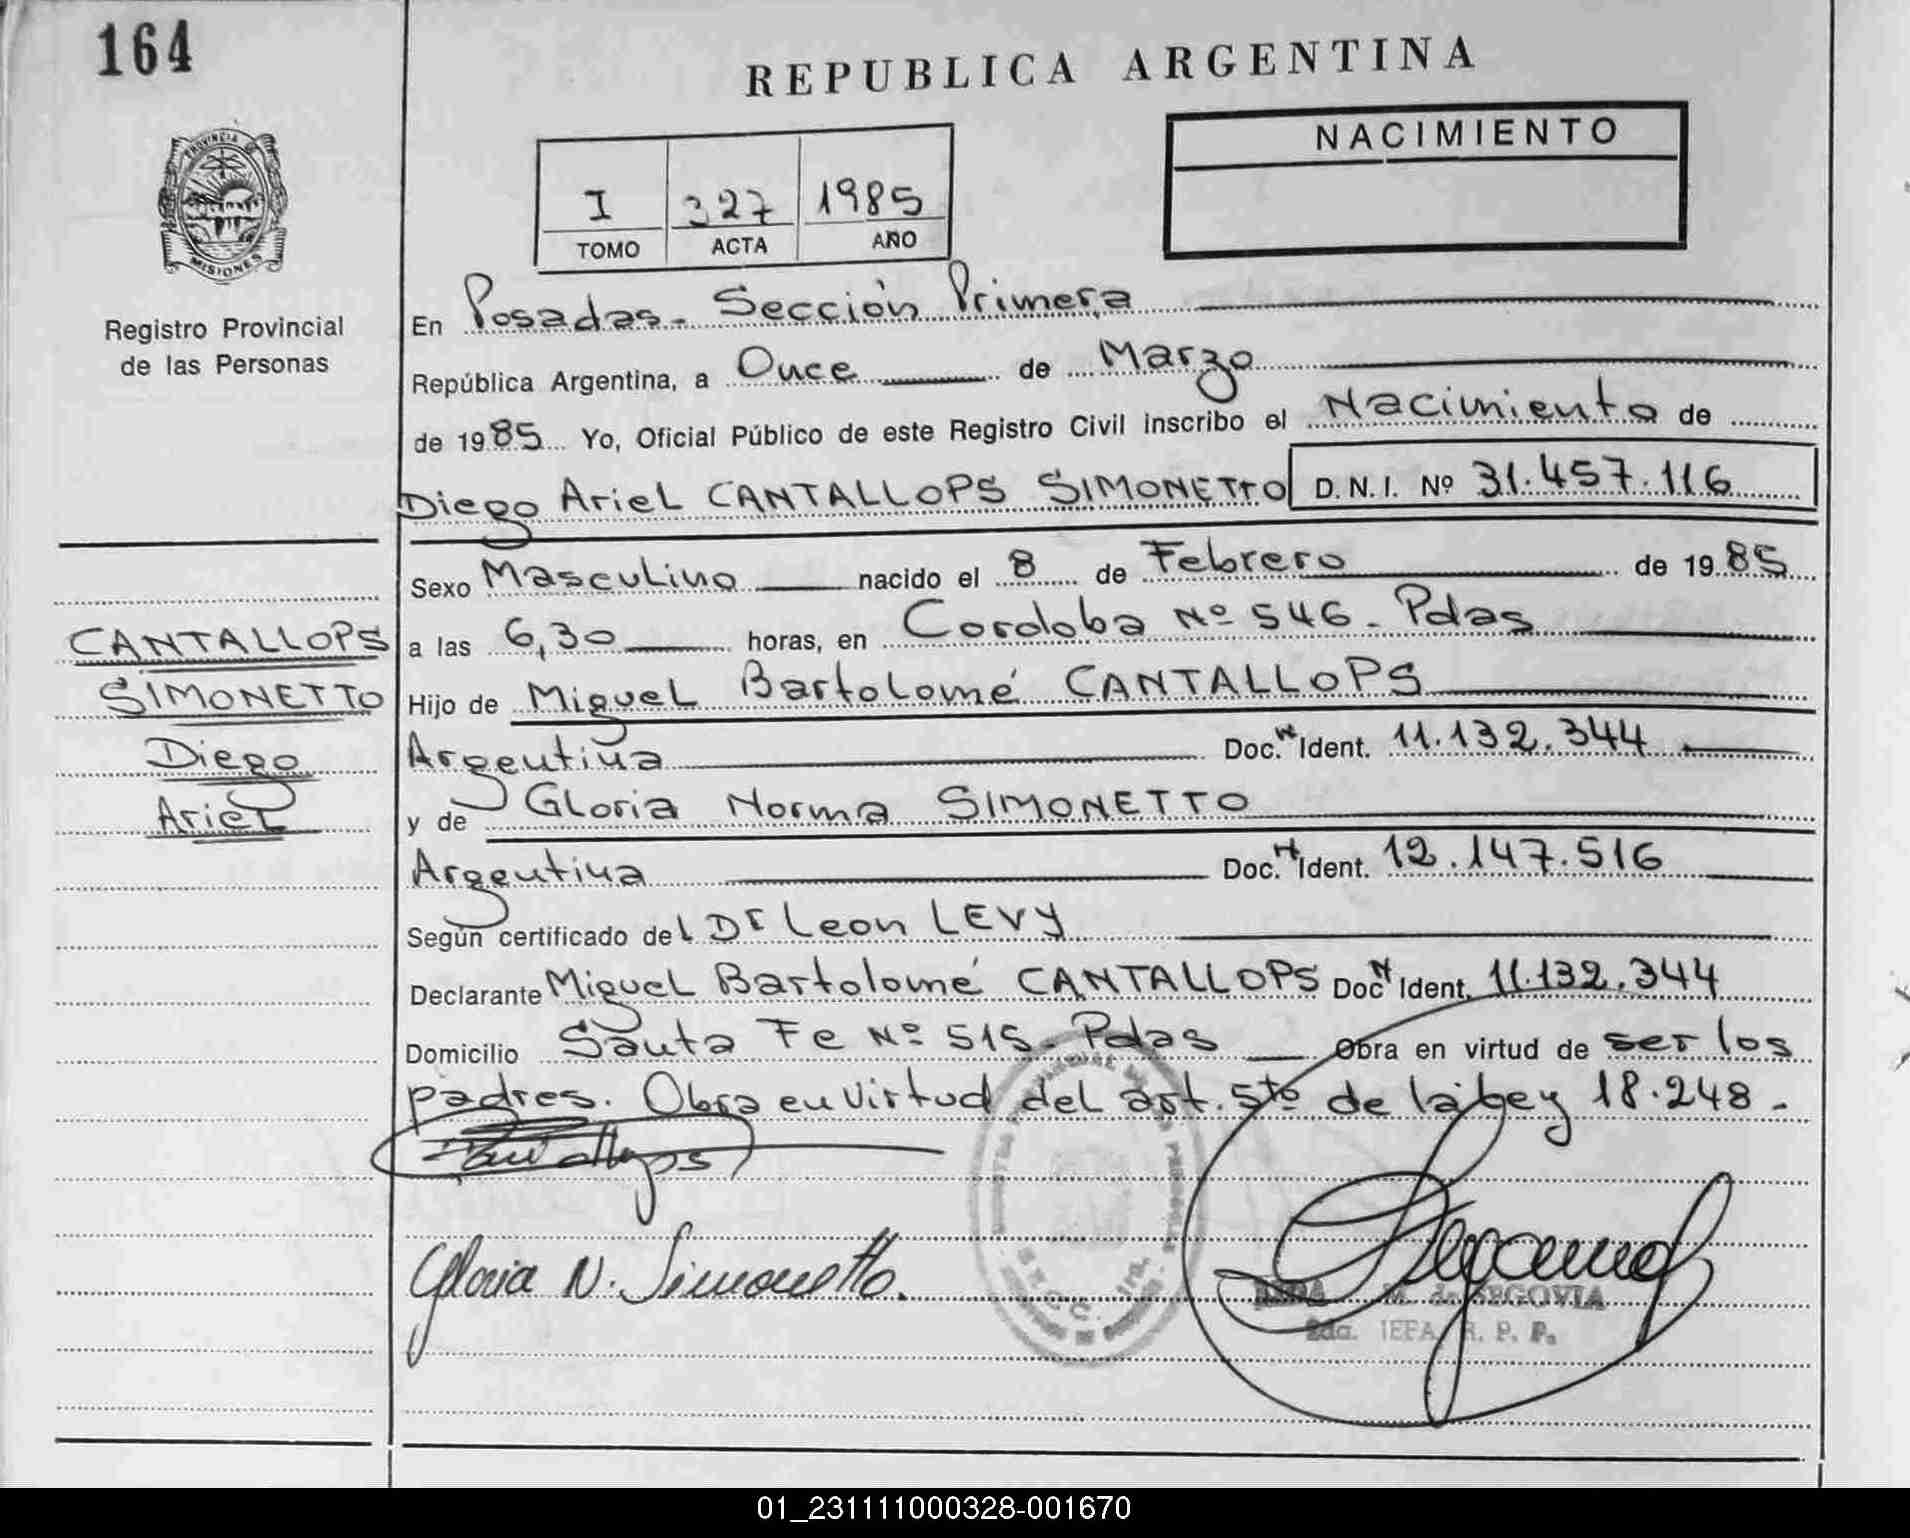 164
REPUBLICA ARGENTINA
PROVINCIA DE
MISIONES
Registro Provincial
de las Personas
NACIMIENTO
I 327 1985
TOMO ACTA AÑO
En Posadas - Sección Primera
República Argentina, a Once de Marzo
de 1985 Yo, Oficial Público de este Registro Civil inscribo el Nacimiento de
Diego Ariel CANTALLOPS SIMONETTO D.N.I. Nº 31.457.116
Sexo Masculino nacido el 8 de Febrero de 1985
a las 6,30 horas, en Cordoba Nº 546 - Pdas
Hijo de Miguel Bartolomé CANTALLOPS
Argentina Doc.N Ident. 11.132.344
y de Gloria Norma SIMONETTO
Argentina Doc.N Ident. 12.147.516
Según certificado del Dr Leon LEVY
Declarante Miguel Bartolomé CANTALLOPS Doc.N Ident. 11.132.344
Domicilio Santa Fe Nº 515 - Pdas Obra en virtud de ser los
padres. Obra en virtud del art. 5to de la Ley 18.248 -
CANTALLOPS
SIMONETTO
Diego
Ariel
Cantallops
Gloria N. Simonetto.
M. de SEGOVIA
2da. JEFA R. P. P.
01_231111000328-001670